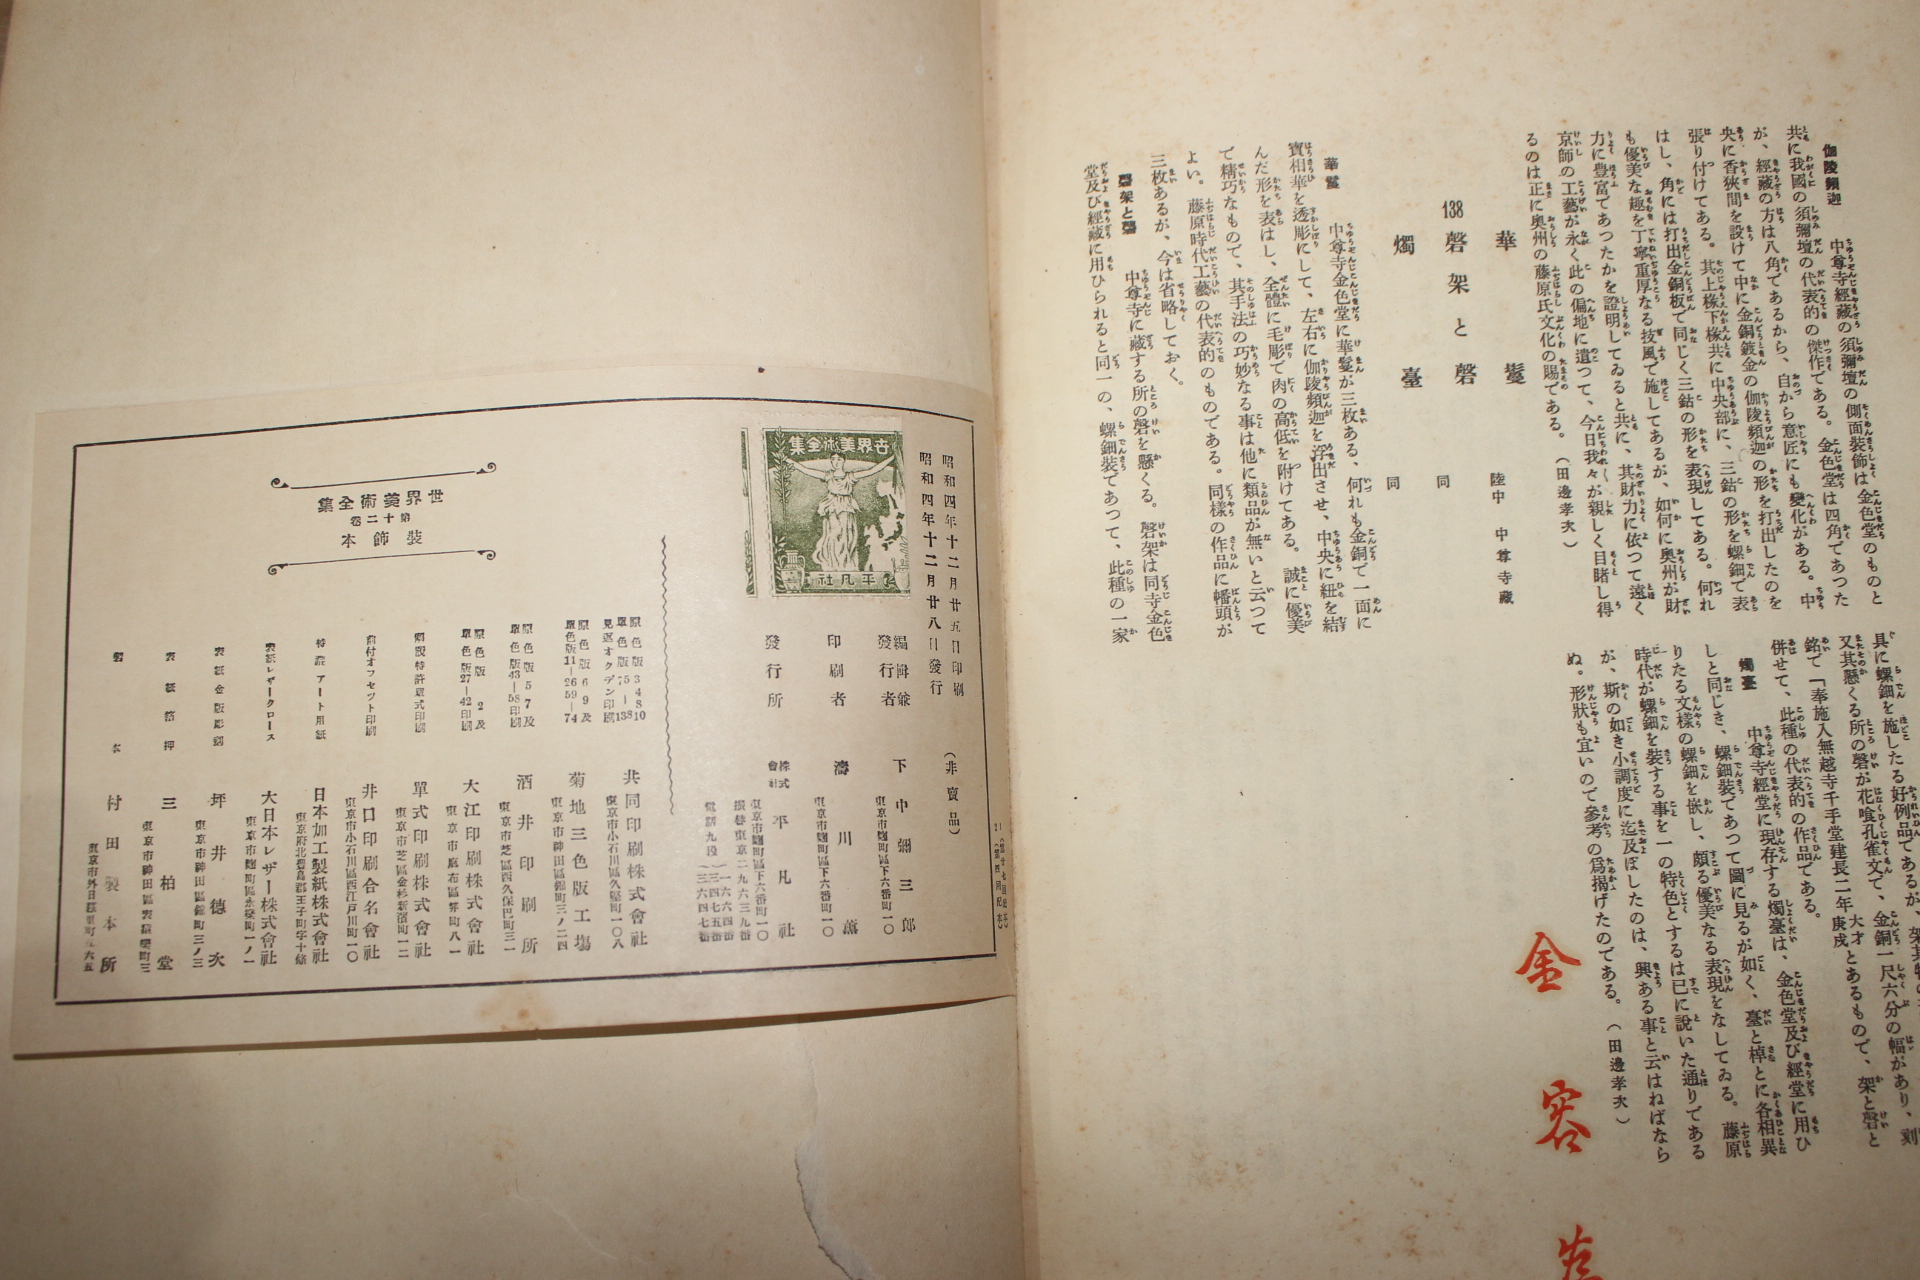 伽陵頻迦　中尊寺經藏の須彌壇の側面裝飾は金色堂のものと
共に我國の須彌壇の代表的の傑作である。金色堂は四角であつた
が、經藏の方は八角であるから、自から意匠にも變化がある。中
央に香狹間を設けて中に金銅鍍金の伽陵頻迦の形を打出したのを
張り付けてある。其上椽下椽共に中央部に、三鈷の形を螺鈿で表
はし、角には打出金銅板で同じく三鈷の形を表現してある。何れ
も優美な趣を丁寧重厚なる技風で施してあるが、如何に奥州が財
力に豊富であつたかを證明してゐると共に、其財力に依つて遠く
京師の工藝が永く此の偏地に遺つて、今日我々が親しく目睹し得
るのは正に奥州の藤原氏文化の賜である。（田邊孝次）
華鬘　陸中　中尊寺藏
138 磬架と磬　同
燭臺　同
華鬘　中尊寺金色堂に華鬘が三枚ある、何れも金銅で一面に
寶相華を透彫にして、左右に伽陵頻迦を浮出させ、中央に紐を結
んだ形を表はし、全體に毛彫で肉の高低を附けてある。誠に優美
で精巧なもので、其手法の巧妙なる事は他に類品が無いと云つて
よい。藤原時代工藝の代表的のものである。同樣の作品に幡頭が
三枚あるが、今は省略しておく。
磬架と磬　中尊寺に藏する所の磬を懸くる。磬架は同寺金色
堂及び經藏に用ひられると同一の、螺鈿裝であつて、此種の一家
具に螺鈿を施したる好例品であるが、
又其懸くる所の磬が花喰孔雀文で、金銅一尺六分の幅があり、刻
銘て「奉施入無越寺千手堂建長二年大才庚戌とあるもので、架と磬と
併せて、此種の代表的の作品である。
燭臺　中尊寺經堂に現存する燭臺は、金色堂及び經堂に用ひ
しと同じき、螺鈿裝であつて圖に見るが如く、臺と棹とに各相異
りたる文樣の螺鈿を嵌し、頗る優美なる表現をなしてゐる。藤原
時代が螺鈿を裝する事を一の特色とするは已に說いた通りである
が、斯の如き小調度に迄及ぼしたのは、興ある事と云はねばなら
ぬ。形狀も宜いので參考の爲揭げたのである。（田邊孝次）
金容
昭和四年十二月廿五日印刷
昭和四年十二月廿八日發行
（非賣品）
編輯兼發行者　下中彌三郎
東京市麹町區下六番町一〇
印刷者　濤川薰
東京市麹町區下六番町一〇
發行所　株式會社　平凡社
東京市麹町區下六番町一〇
振替東京二九六三九番
世界美術全集
平凡社
共同印刷株式會社
東京市小石川區久堅町一〇八
菊地三色版工場
東京市神田區錦町三ノ二四
酒井印刷所
東京市芝區西久保巴町三一
大江印刷株式會社
單式印刷株式會社
東京市芝區金杉新濱町一二
前付オフセツト印刷　井口印刷合名會社
東京市小石川區西江戸川町一〇
特漉アート用紙　日本加工製紙株式會社
東京府北豊島郡王子町字十條
表紙レザークロース　大日本レザー株式會社
表紙金版彫刻　坪井德次
東京市神田區錦町三ノ三
表紙箔押　三柏堂
製本　村田製本所
世界美術全集
第十二卷
裝飾本